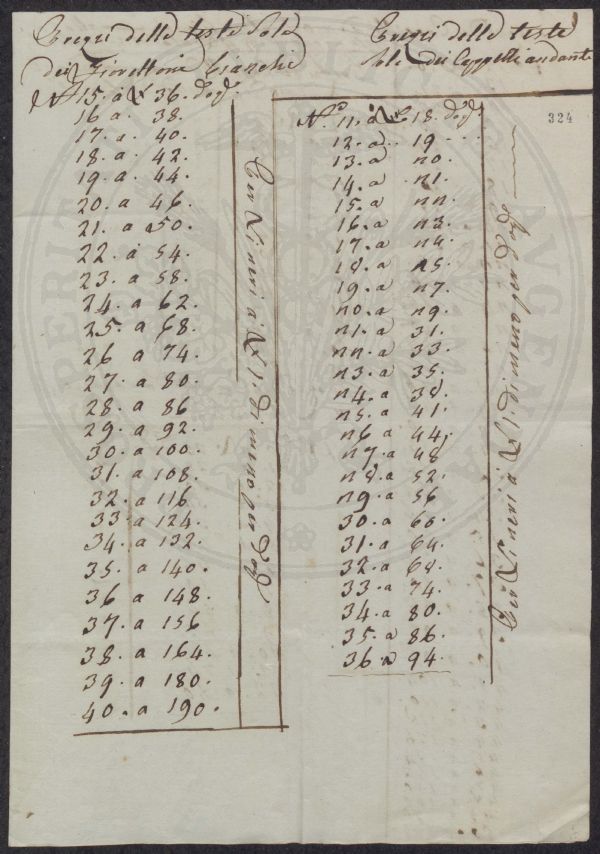 Prezzi delle teste Sole
dei Fiorettoni bianchi
N° 15. a £ 36. dog.
16 a. 38.
17. a 40.
18. a 42.
19. a 44.
20. a 46.
21. a 50.
22. a 54.
23. a 58.
24. a 62.
25. a 68.
26 a 74.
27. a 80.
28. a 86
29. a 92.
30. a 100.
31. a 108.
32. a 116
33 a 124.
34. a 132.
35. a 140.
36 a 148.
37. a 156
38. a 164.
39. a 180.
40. a 190.
neri a £ 1: di meno per dog.
Prezzi delle teste
Sole dei andante
324
N.° 11. a £ 18. dog.
12. a 19
13. a 20.
14. a 21.
15. a 22.
16. a 23.
17. a 24.
18. a 25.
19. a 27.
20. a 29.
21. a 31.
22. a 33.
23. a 35.
24. a 38.
25. a 41.
26 a 44.
27. a 48
28. a 52.
29. a 56
30. a 60.
31. a 64.
32. a 68.
33. a 74.
34. a 80.
35. a 86.
36 a 94.
neri a £ 1: di meno per dog.